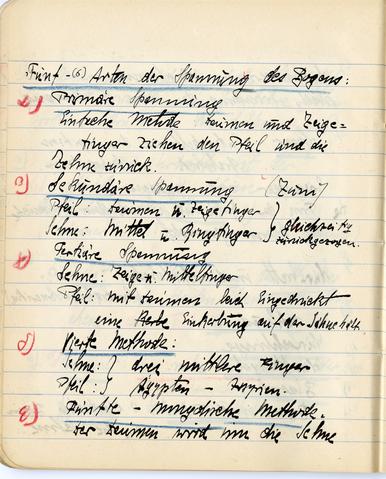 Fünf-(5) Arten der Spannung des Bogens:
Primäre Spannung
Einfache Methode Daumen und Zeige-
finger ziehen den Pfeil und die
Sehne zurück.
Sekundäre Spannung (Zuni)
Pfeil: Daumen u. Zeigefinger } gleichzeitig
Sehne: Mittel u. Ringfinger } zurückgezogen.
Tertiäre Spannung
Sehne: Zeige u. Mittelfinger
Pfeil: mit Daumen leicht Eingedrückt
eine Einkerbung auf der Sehne hält
Vierte Methode:
Sehne: } drei mittlere Finger
Pfeil: } Ägypten -
Fünfte - mongolische Methode.
Der Daumen wird um die Sehne